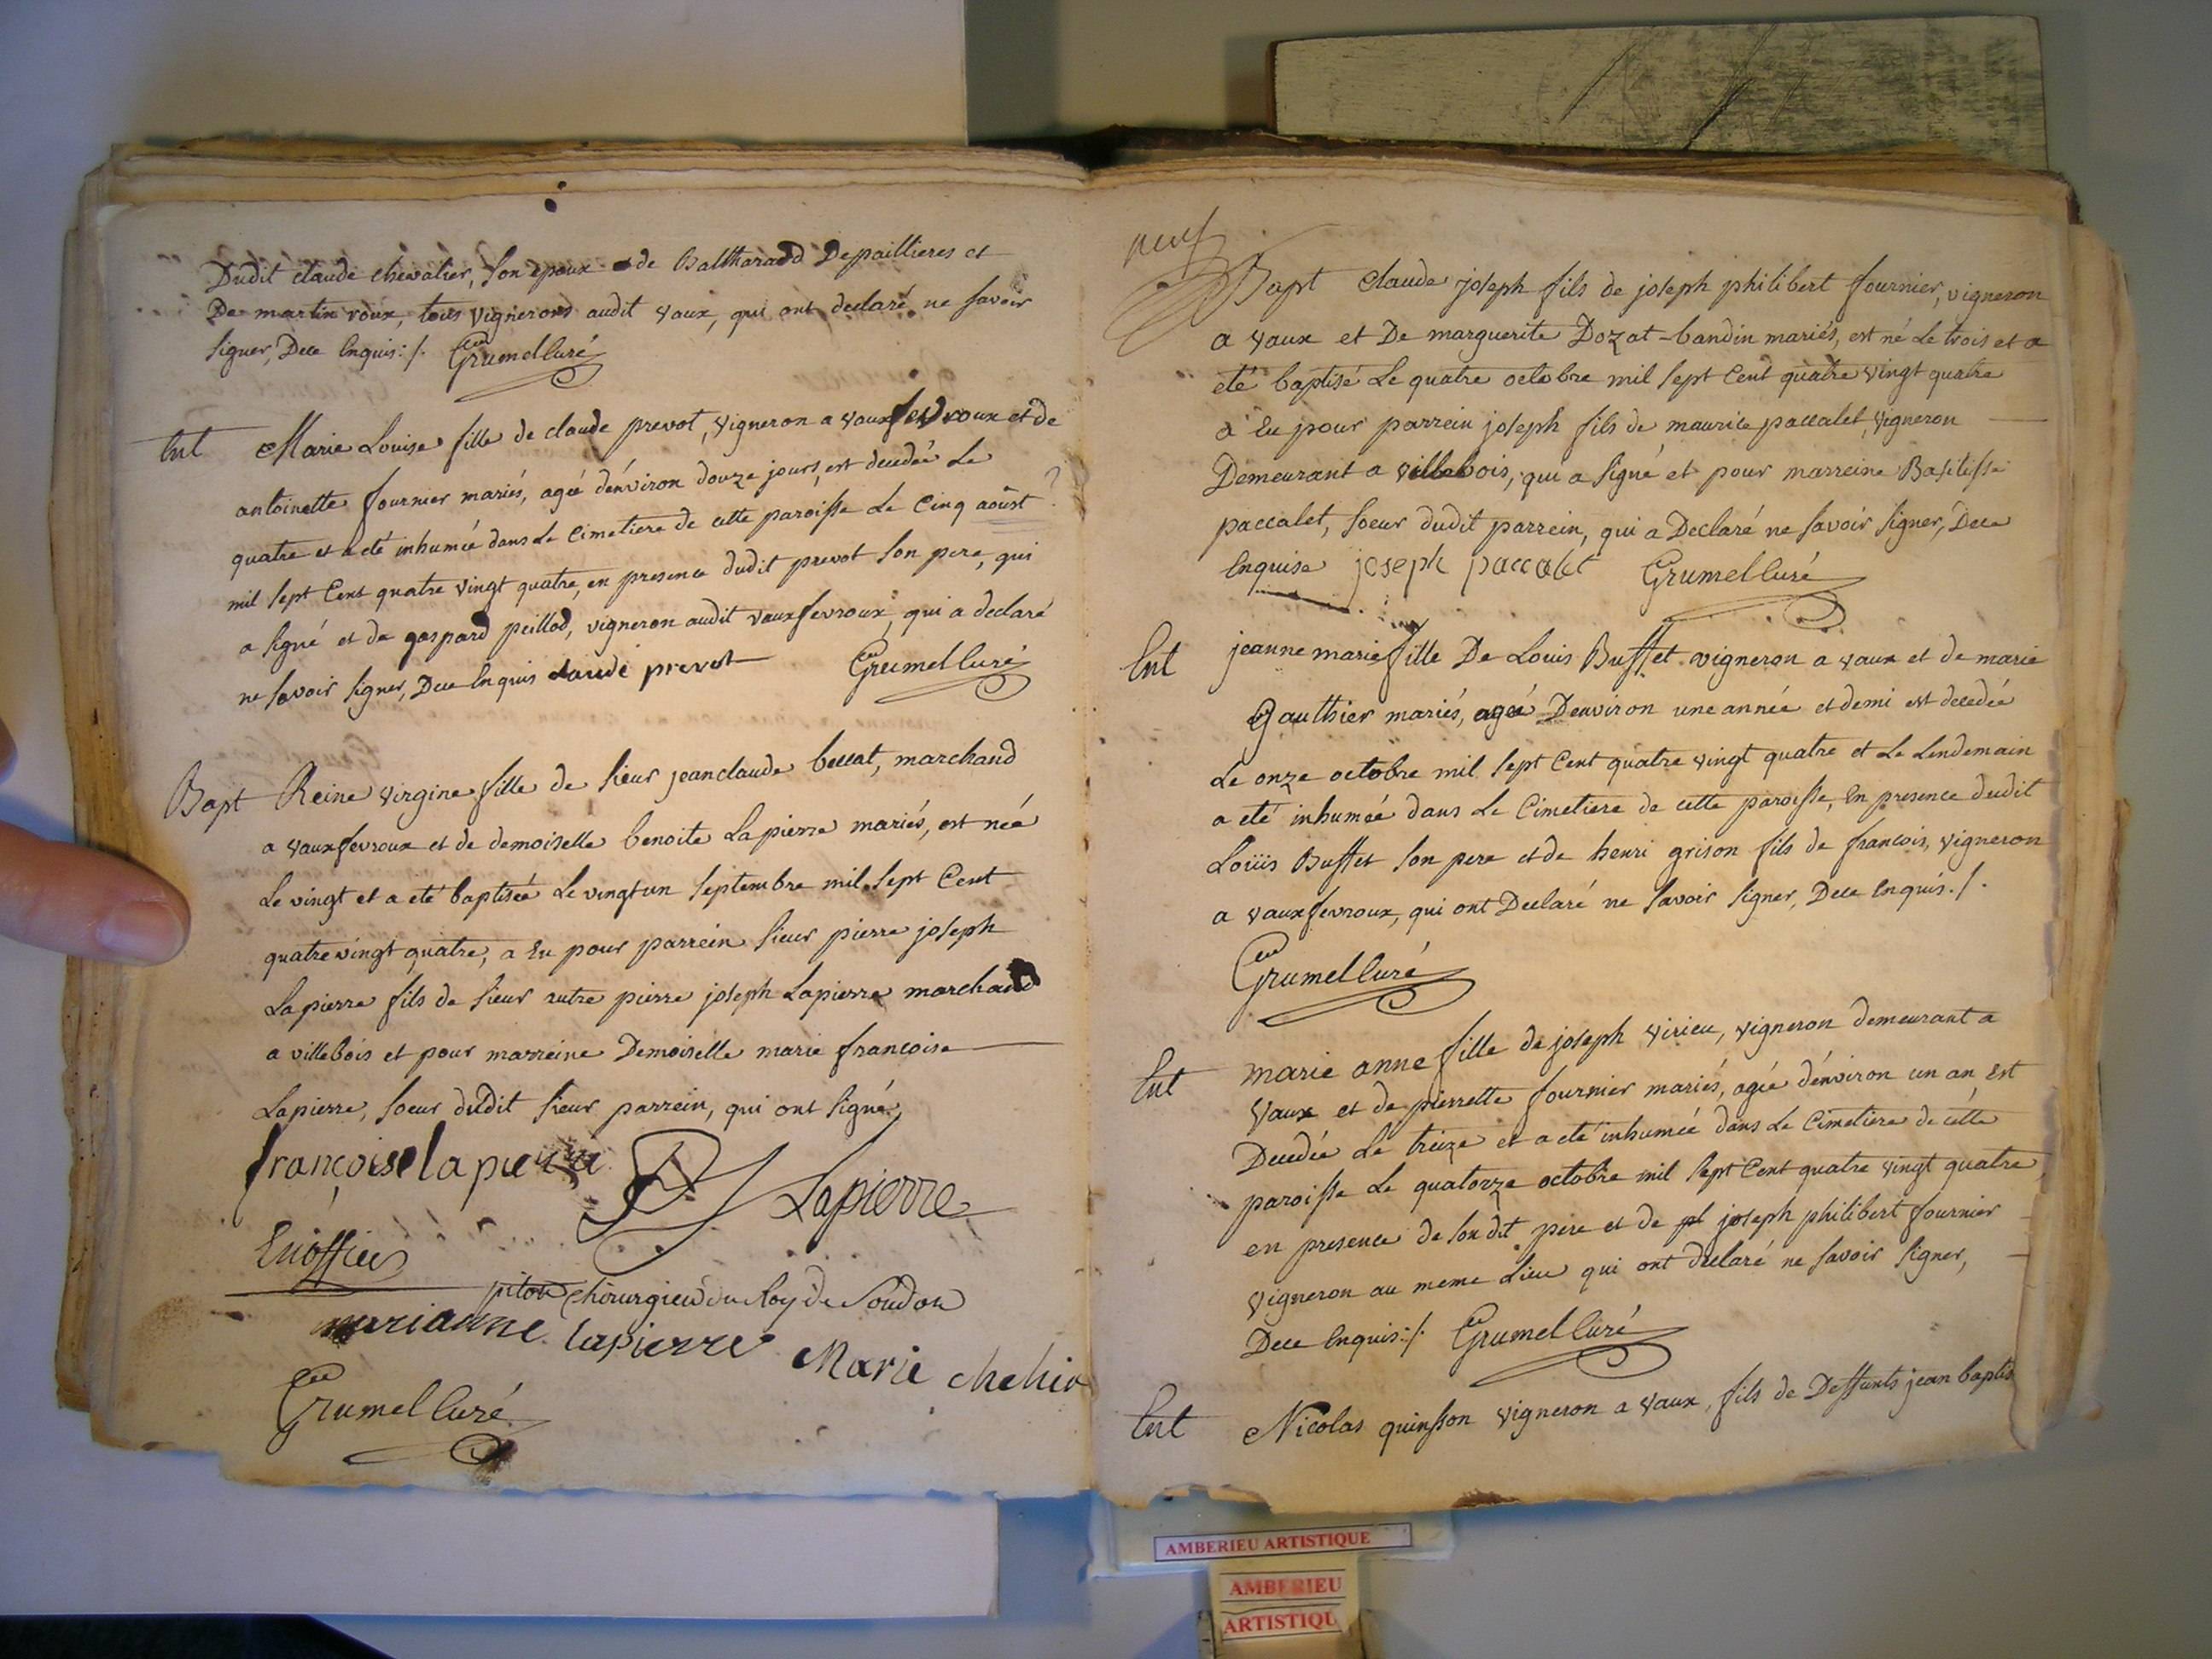 Dudit claude chevalier, son epoux et de Balthazard Depaillieres et
De martin roux, tous vignerons audit vaux, qui ont declaré ne savoir
signer, Dece Enquis :/. Grumel Curé
Ent Marie Louise fille de claude prevot, vigneron a vauxfevroux et de
antoinette fournier mariés, ageé d'énviron douze jours, est decedeé Le
quatre et a eté inhumeé dans Le Cimetiere de cette paroisse Le Cinq aoûst
mil sept Cent quatre vingt quatre, en presence dudit prevot son pere, qui
a signé et de gaspard peillod, vigneron audit vauxfevroux, qui a declaré
ne savoir signer, Dece Enquis claude prevot Grumel Curé
Bapt Reine virgine fille de sieur jeanclaude beccat, marchand
a vauxfevroux et de demoiselle benoite Lapierre mariés, est neé
Le vingt et a eté baptiseé Le vingtun septembre mil sept Cent
quatrevingt quatre, a Eu pour parrein sieur pierre joseph
Lapierre fils de sieur autre pierre joseph Lapierre marchand
a villebois et pour marreine Demoiselle marie francoise
Lapierre, soeur dudit sieur parrein, qui ont signé,
françoise lapierre Lapierre
piton chirurgien du Roy de Soudon
marianne lapierre Marie
Grumel Curé
neuf
Bapt Claude joseph fils de joseph philibert fournier, vigneron
a vaux et De marguerite Dozat-bandin mariés, est né Le trois et a
eté baptisé Le quatre octobre mil sept Cent quatre vingt quatre
a Eu pour parrein joseph fils de maurice paccalet, vigneron
Demeurant a villebois, qui a signé et pour marreine Basilisse
paccalet, soeur dudit parrein, qui a Declaré ne savoir signer, Dece
Enquise joseph paccalet Grumel Curé
Ent jeanne marie fille De Louis Buffet vigneron a vaux et de marie
Gauthier mariés, ageé Denviron une année et demi est decedeé
Le onze octobre mil sept Cent quatre vingt quatre et Le Lendemain
a eté inhumeé dans Le Cimetiere de cette paroisse, En presence dudit
Loüis Buffet son pere et de henri grison fils de francois, vigneron
a vauxfevroux, qui ont Declaré ne savoir signer, Dece Enquis ./.
Grumel Curé
Ent marie anne fille de joseph virieu, vigneron demeurant a
vaux et de pierrette fournier mariés, ageé d'énviron un an Est
Decedée Le treize et a eté inhumeé dans Le Cimetiere de cette
paroisse Le quatorze octobre mil sept Cent quatre vingt quatre,
en presence de son dit pere et de pl joseph philibert fournier
vigneron au meme Lieu qui ont declaré ne savoir signer,
Dece Enquis :/. Grumel Curé
Ent Nicolas quinsson vigneron a vaux, fils de Deffunts jean baptis
AMBERIEU ARTISTIQUE
AMBERIEU
ARTISTIQU